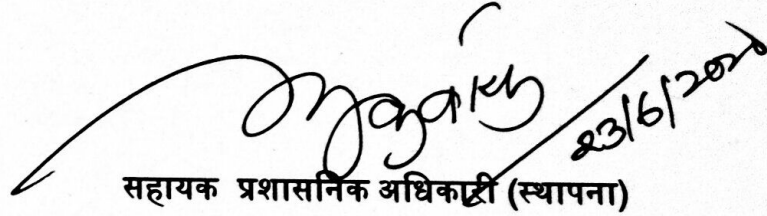 23/6/2020
सहायक प्रशासनिक अधिकारी (स्थापना)